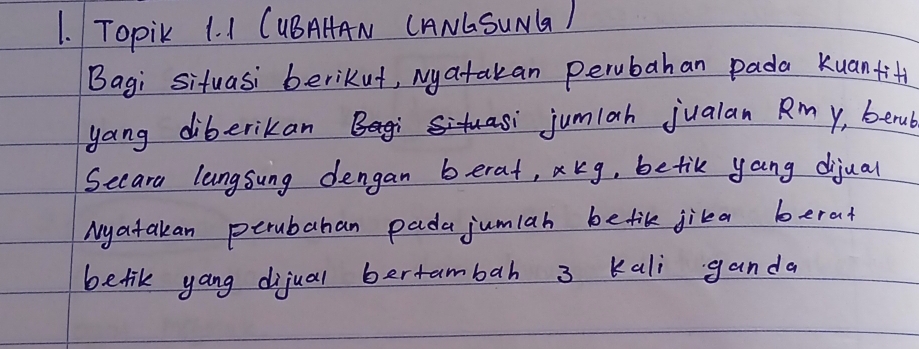 1. Topik 1.1 (UBAHAN LANGSUNG)
Bagi situasi berikut, Nyatakan perubahan pada kuantiti
yang diberikan Bagi situasi jumlah jualan Rm y, berub
Secara langsung dengan berat, x kg, betik yang dijual
Nyatakan perubahan pada jumlah betik jika berat
betik yang dijual bertambah 3 kali ganda